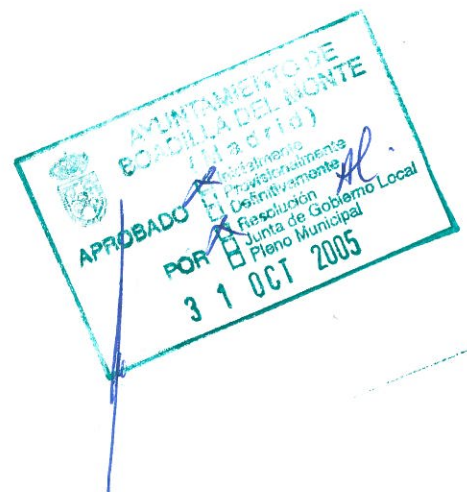 AYUNTAMIENTO DE
BOADILLA DEL MONTE
(Madrid)
APROBADO
Inicialmente
Provisionalmente
Definitivamente
POR
Resolución
Junta de Gobierno Local
Pleno Municipal
31 OCT 2005